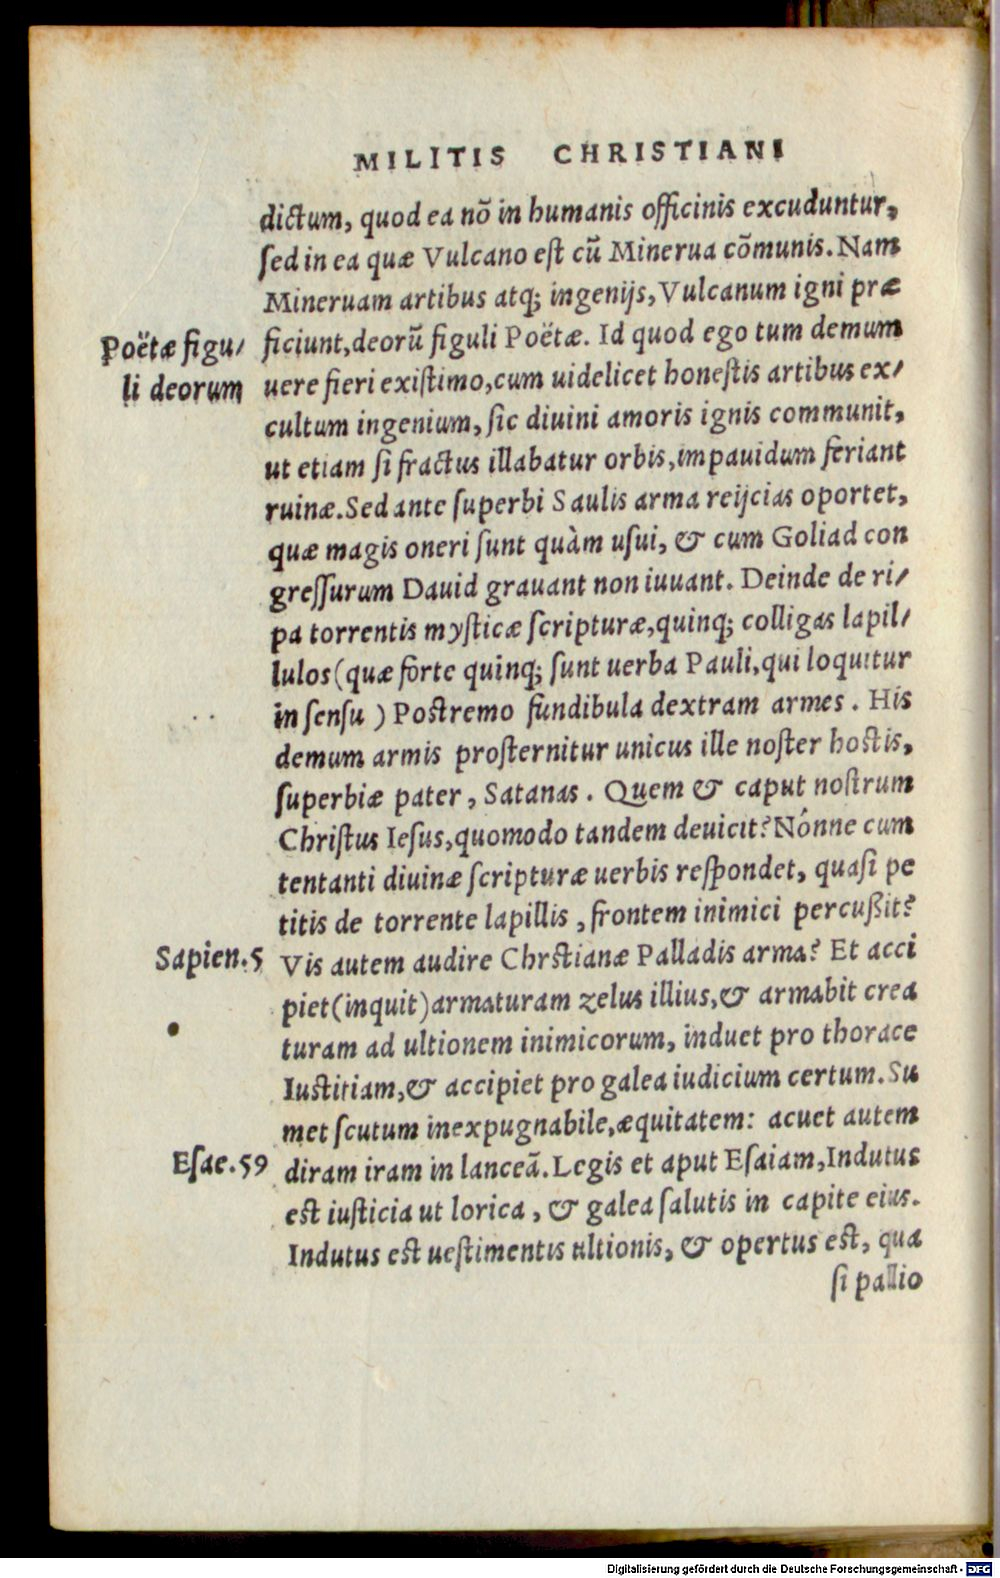 MILITIS CHRISTIANI
dictum, quod ea nõ in humanis officinis excuduntur,
ſed in ea quæ Vulcano eſt cũ Minerua cõmunis. Nam
Mineruam artibus atq; ingenijs, Vulcanum igni præ
Poëtæ figu/
li deorum
ficiunt, deorũ figuli Poëtæ. Id quod ego tum demum
uere fieri exiſtimo, cum uidelicet honeſtis artibus ex/
cultum ingenium, ſic diuini amoris ignis communit,
ut etiam ſi fractus illabatur orbis, impauidum feriant
ruinæ. Sed ante ſuperbi Saulis arma reijcias oportet,
quæ magis oneri ſunt quàm uſui, & cum Goliad con
greſſurum Dauid grauant non iuuant. Deinde de ri/
pa torrentis myſticæ ſcripturæ, quinq; colligas lapil/
lulos (quæ forte quinq; ſunt uerba Pauli, qui loquitur
in ſenſu ) Postremo fundibula dextram armes . His
demum armis proſternitur unicus ille noſter hostis,
ſuperbiæ pater , Satanas . Quem & caput noſtrum
Chriſtus Ieſus, quomodo tandem deuicit? Nónne cum
tentanti diuinæ ſcripturæ uerbis reſpondet, quaſi pe
titis de torrente lapillis , frontem inimici percußit?
Sapien. 5
Vis autem audire Chrstianæ Palladis arma? Et acci
piet (inquit) armaturam zelus illius, & armabit crea
turam ad ultionem inimicorum, induet pro thorace
Iustitiam, & accipiet pro galea iudicium certum. Su
met ſcutum inexpugnabile, æquitatem: acuet autem
Eſae. 59
diram iram in lanceã. Legis et aput Eſaiam, Indutus
est iuſticia ut lorica , & galea ſalutis in capite eius.
Indutus est ueſtimentis ultionis, & opertus est, qua
ſi pallio
Digitalisierung gefördert durch die Deutsche Forschungsgemeinschaft - DFG